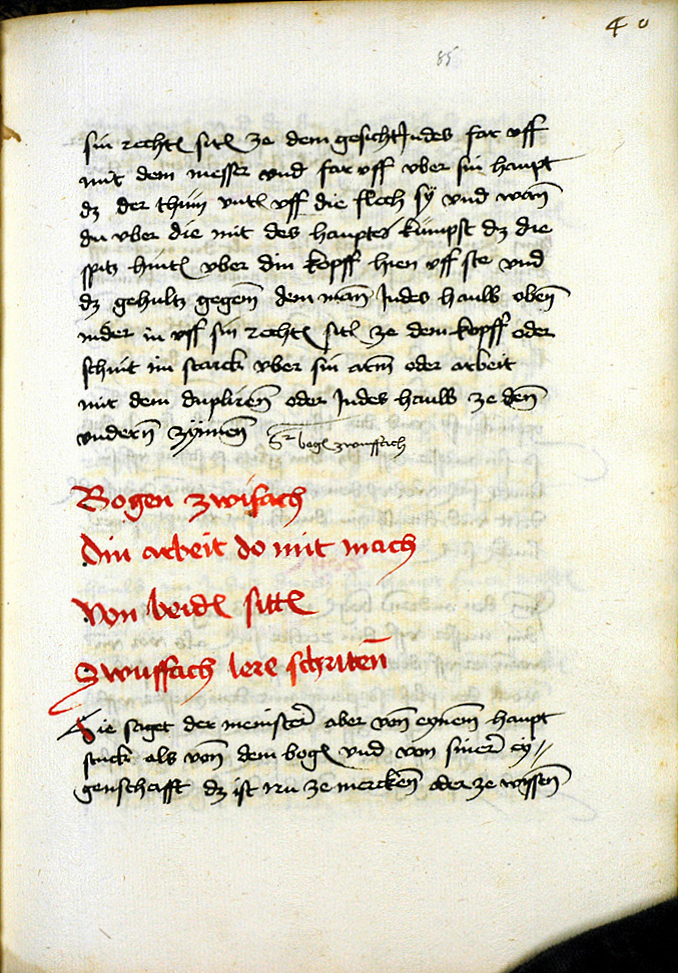 40
85
sin rechtē sitē ze dem gesicht Indes far vff
mit dem messer vnd far vff vber sin haupt
dz der thum vntē vff die flech sÿ vnd wan̄
du vber die mit des hauptes kumpst dz die
spitz hintē vber din kopff hien vff ste vnd
dz gehultz gegen̄ dem man̄ Indes hauw oben̄
nider in vff sin rechtē sitē ze dem kopff oder
schnit im starck vber sin arm oder arbeit
mit dem dupliren̄ oder Indes hauw ze den̄
vndern̄ zÿnnen̄
bogē zwiffach
Bogen zwifach
Din arbeit do mit mach
Von beidē sittē
Zwuffach lere schriten̄
Hie saget der meinster̄ aber von̄ eynem̄ haupt
stuck als von̄ dem bogē vnd von siner̄ ey//
genschafft dz ist nu ze mercken̄ oder ze wyssen̄